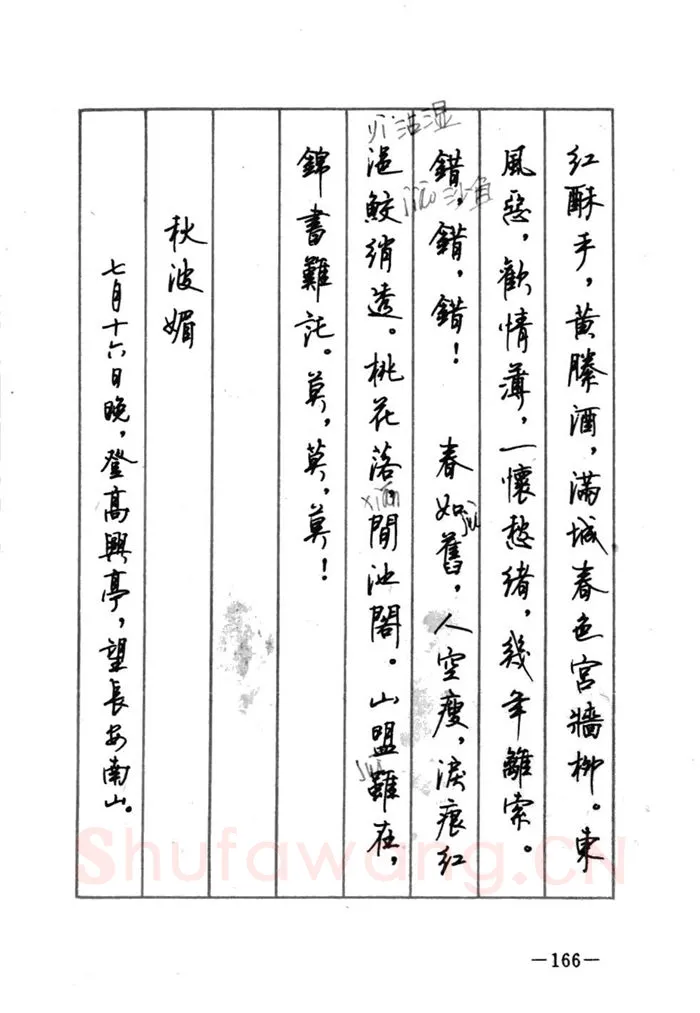 红酥手，黄縢酒，滿城春色宮牆柳。東
風惡，歡情薄，一懷愁绪，幾年離索。
錯，錯，錯！ 春如舊，人空瘦，淚痕红
浥鲛绡透。桃花落，閒池閣。山盟雖在，
錦書難託。莫，莫，莫！
秋波媚
七月十六日晚，登高興亭，望長安南山。
yì 沾湿
jiāo 沙鱼
xián
jiù
suī
Shufawang.CN
—166—